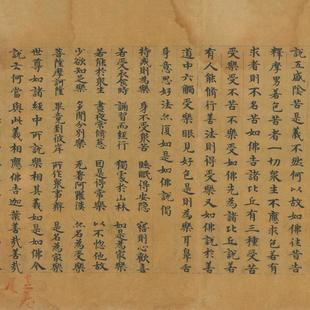 說五盛陰苦是義不然何以故如佛往昔告
釋摩男若色苦者一切眾生不應求色若有
求者則不名苦如佛告諸比丘有三種受苦
受樂受不苦不樂受如佛先為諸比丘說若
有人能修行善法則得受樂又如佛說於善
道中六觸受樂眼見好色是則為樂耳鼻舌
身意思好法亦復如是如佛說偈
持戒則為樂 身不受眾苦 睡眠得安隱 寤則心歡喜
若受衣食時 誦習而經行 獨處於山林 如是為最樂
若能於眾生 晝夜常修慈 因是得常樂 以不惱他故
少欲知足樂 多聞分別樂 无著阿羅漢 亦名為受樂
菩薩摩訶薩 畢竟到彼岸 所作眾事辦 是名為最樂
世尊如諸經中所說樂相其義如是如佛今
說云何當與此義相應佛告迦葉善哉善哉